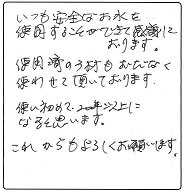 いつも安全なお水を
使用することができて感謝して
おります。
使用済のうえもおびなく
使わせて頂いております。
使い初めて、20年以上に
なると思います。
これからもよろしくお願いします。